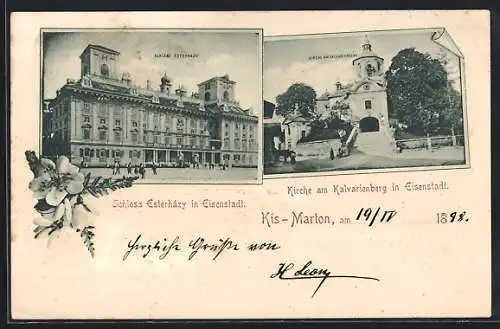 SCHLOSS ESTERHAZY
Schloss Esterházy in Eisenstadt.
Kirche am Kalvarienberg in Eisenstadt.
Kis-Marton, am 19/IV 1898.
Herzliche Grüße von
H Leony